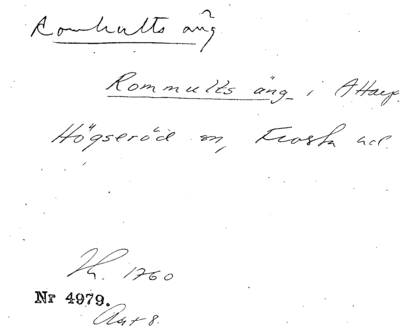 Romhults äng
Rommulls äng i A Harp.
Högseröd sn, Frosta hd.
Th. 1760
Nr 4979.
Akt 8.